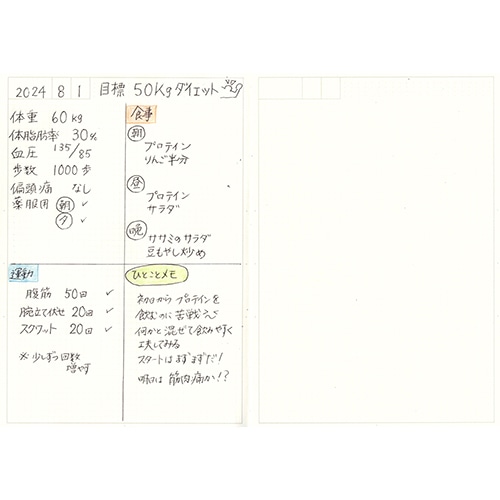 2024 8 1 目標 50Kgダイエット
体重 60kg
体脂肪率 30%
血圧 135/85
歩数 1000歩
偏頭痛 なし
薬服用 朝 ✓
夕 ✓
食事
朝
プロテイン
りんご半分
昼
プロテイン
サラダ
晩
ササミのサラダ
豆もやし炒め
運動
腹筋 50回 ✓
腕立て伏せ 20回 ✓
スクワット 20回 ✓
※ 少しずつ回数
増やす
ひとことメモ
初日から プロテインを
飲むのに 苦戦
何かと 混ぜて飲みやすく
工夫してみる
スタートは まずまずだ!
明日は 筋肉痛か!?